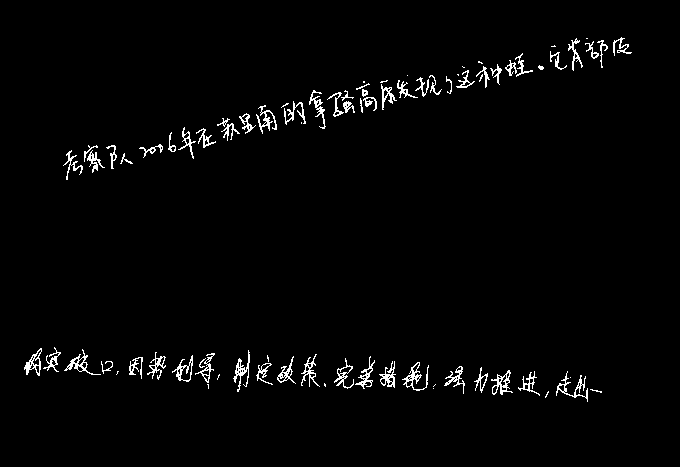 考察队2006年在苏里南的拿骚高原发现了这种蛙。它背部皮
为突破口,因势利导,制定政策、完善措施,强力推进,走出一